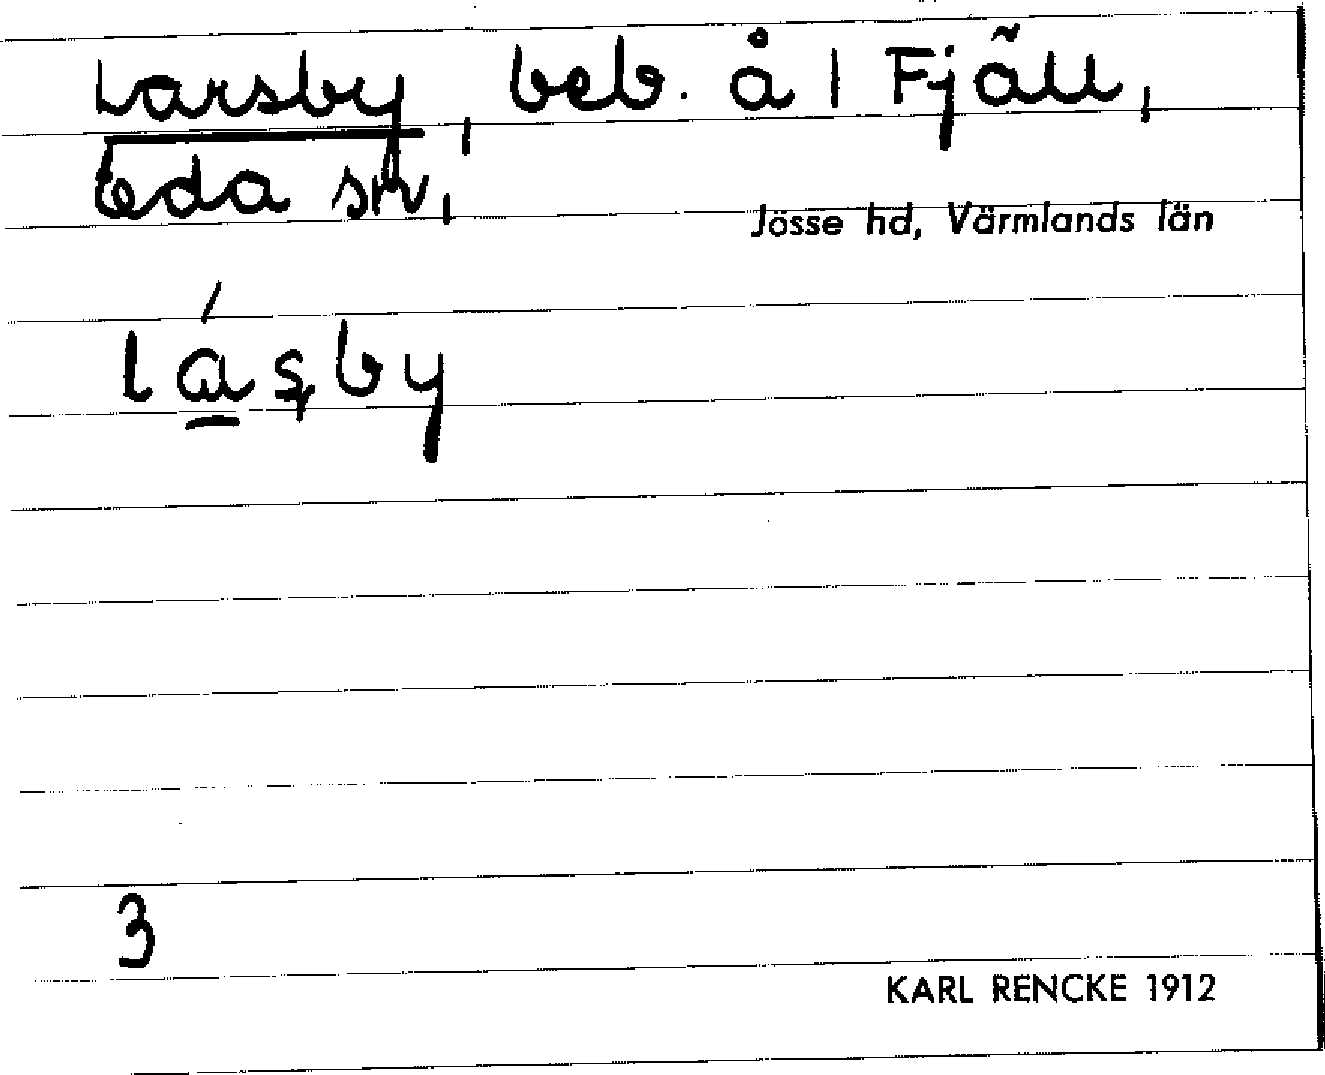 Larsby, beb. å 1 Fjäll,
Eda sn,
Jösse hd, Värmlands län
lásby
3
KARL RENCKE 1912